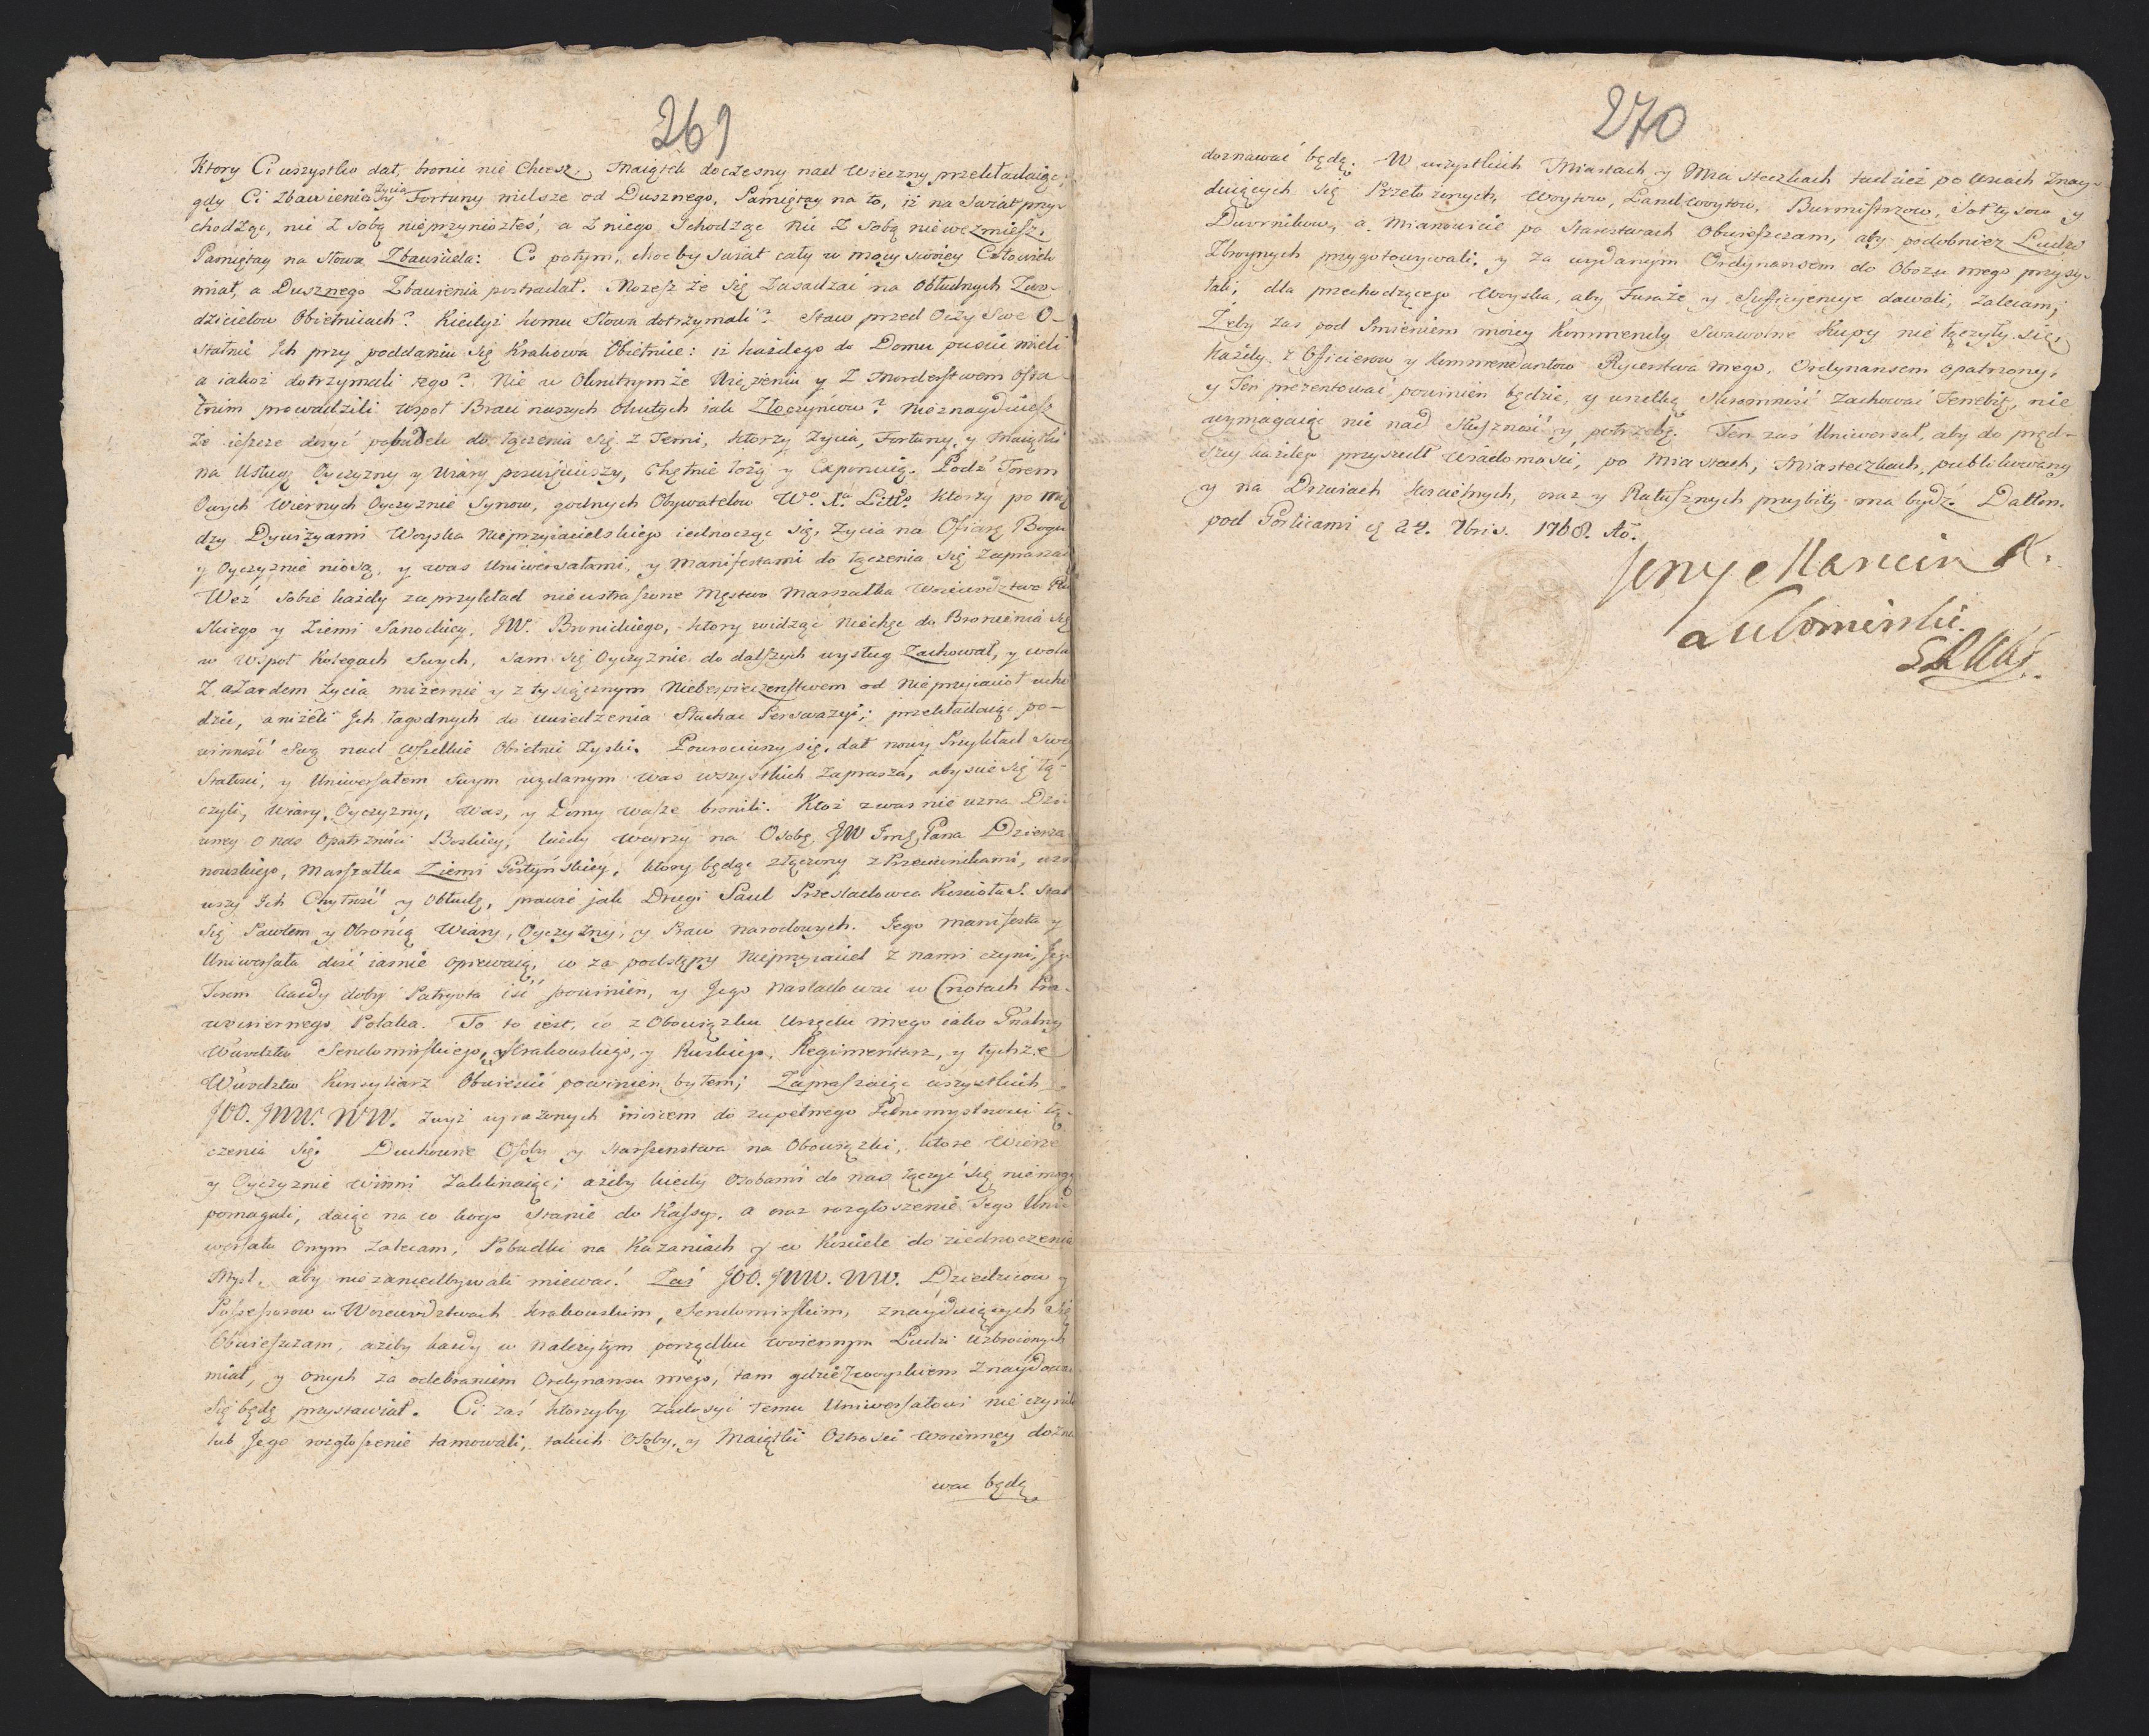 269
Ktory Ci wszystko dał, bronic nie chcesz, Maiątek doczesny nad Wieczny przekładaiąc,
gdy Ci Zbawienie Zycia y Fortuny milsze od Dusznego, Pamiętay na to, iż na Swiat przy-
chodząc, nic z sobą nieprzyniosłeś, a z niego schodząc nic z sobą nie wezmiesz.
Pamiętay na słowa Zbawiciela: Co potym, choćby swiat cały w mocy swoiey Człowiek
miał, a Dusznego Zbawienia postradał. Mozesz że się zasadzać na obłudnych Zwo-
dzicielow Obietnicach? Kiedyż komu Słowa dotrzymali? Staw przed Oczy Swe O-
statnie Ich przy poddaniu się Krakowa Obietnice: iż każdego do Domu puscić mieli
a iakoż dotrzymali tego? Nie w Okrutnym że Więzieniu y z Morderstwem osta-
tnim prowadzili wspoł Braci naszych okutych iak Złoczyńcow? Nieznaydziesz
że ieszcze dosyć pobudek do łączenia się z Temi, ktorzy Zycia, Fortuny, y Maiątki
na Usługę Oyczyzny y Wiary poswięciwszy, Chętnie łożą y Exponuią. Podź Torem
Owych Wiernych Oyczyznie Synow, godnych Obywatelow Wo. Xa. Litto. ktorzy po mię
dzy Dywizyami Woyska Nieprzyiacielskiego iednocząc się, Zycia na Ofiarę Bogu
y Oyczyznie niosą, y was Uniwersałami, y Manifestami do łączenia się zapraszaią
Weź sobie każdy za przykład nieustraszone Męstwo Marszałka Woiewodztwa Ru
skiego y Ziemi Sanockiey, JW. Bronickiego, ktory widząc niechęć do Bronienia się
w wspoł kolegach swych, sam się Oyczyznie do dalszych usług zachował, y wolał
z azardem życia mizernie y z tysiącznym Niebespieczenstwem od Nieprzyiacioł ucho
dzić, aniżeli Ich łagodnych do uwiedzenia Słuchać Perswazyi; przekładaiąc po-
winność swą nad wszelkie Obietnic Zyski. Powrociwszy się, dał nowy Przykład swey
Stałosci, y Uniwersałem swym wydanym was wszystkich zaprasza, abyscie się łą-
czyli, Wiary, Oyczyzny, Was, y Domy wasze bronili. Ktoż z was nie uzna Dzi
wney o nas Opatrznosci Boskiey, kiedy weyrzy na Osobę JW Jmć Pana Dzierza
nowskiego, Marszałka Ziemi Gostyńskiey, ktory będąc złączony z Przeciwnikami, uzna
wszy Ich Chytrość y Obłudę, prawie jak Drugi Saul Przesladowca Koscioła S. stał
się Pawłem y Obrońcą Wiary, Oyczyzny, y Praw narodowych. Jego Manifesta y
Uniwersała dość iasnie opiewaią, co za podstępy Nieprzyiaciel z nami czyni, Jego
Torem każdy dobry Patryota iść powinien, y Jego nasladować w Cnotach Pra-
wowiernego Polaka. To to iest, co z Obowiązku Urzędu mego iako Gnalny
Wwdztw Sendomirskiego, y Krakowskiego, y Ruskiego, Regimentarz, y tychże
Wwdztw Konsyliarz Obwiescić powinien byłem; Zapraszaiąc wszystkich
JOO. JWW. WW. zwyż wyrażonych invicem do zupełnego Jednomyslnosci łą-
czenia się. Duchowne Osoby y Starszenstwa na Obowiązki, ktore Wierze
y Oyczyznie winni zaklinaiąc; ażeby kiedy osobami do nas łączyć się nie mogą
pomagali, daiąc na co kogo stanie do Kassy, a oraz rozgłoszenie Tego Uni
wersału onym zalecam, Pobudki na Kazaniach y w Kosciele do ziednoczenia
Mysl, aby nie zaniedbywali miewać. Zaś JOO. JWW. WW. Dziedzicow y
Possessorow w Woiewodztwach Krakowskim, Sendomirskim, znayduiących się
Obwieszczam, ażeby każdy w należytym porządku woiennym Ludzi uzbroionych
miał, y onych za odebraniem Ordynansu mego, tam gdzie z woyskiem znaydować
się będę przystawiał. Ci zaś ktorzyby zadosyć temu Uniwersałowi nie czynili
lub Jego rozgłoszenie tamowali, takich Osoby, y Maiątki Ostrosci woienney dozna
wac będą
270
doznawać będą. W wszystkich Miastach y Miasteczkach tudzież po Wsiach Znay-
duiących się Przełożonych, Woytow, Landwoytow, Burmistrzow, Sołtysow y
Dwornikow, a Mianowicie po Starostwach Obwieszczam, aby podobnież Ludzi
Zbroynych przygotowywali, y za wydanym Ordynansem do Obozu mego przysy-
łali, dla przechodzącego woyska, aby Furaże y Sufficyencye dawali, zalecam;
Zeby zas pod Imieniem moiey Kommendy Swawolne Kupy nie łączyły się,
każdy z Officierow y Kommendantow Rycerstwa mego, Ordynansem opatrzony,
y Ten prezentować powinien będzie, y wszelką skromność zachować Tenebit, nie
wymagaiąc nic nad słuszność y potrzebę. Ten zaś Uniwersał, aby do pręd-
szey każdego przyszedł wiadomosci, po Miastach, Miasteczkach, publikowany
y na Drzwiach koscielnych, oraz y Ratusznych przybity ma bydź. Dattm.
pod Gorlicami d 24. 7bris. 1768. Ao.
Jerzy Marcin X.
Lubomirski.